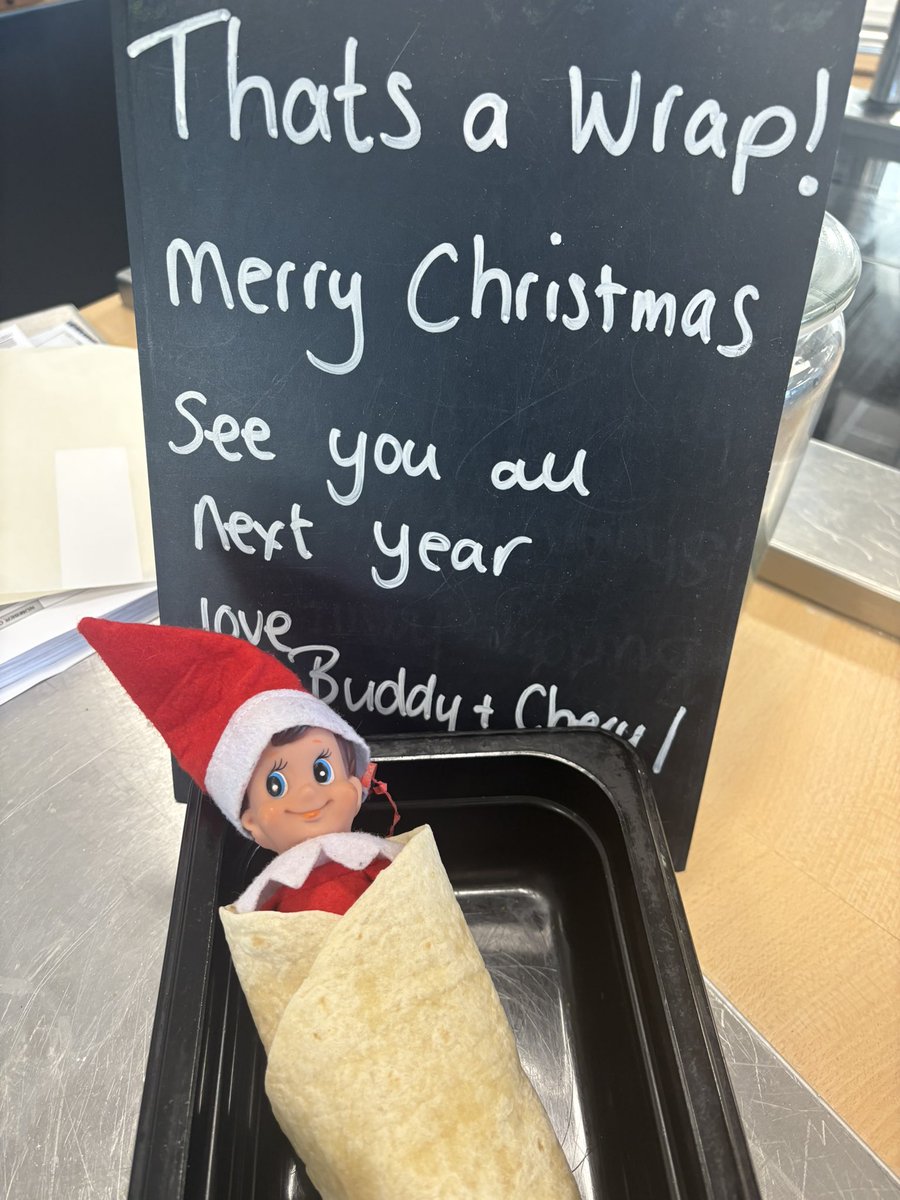 Thats a Wrap!
Merry Christmas
See you all
next year
love
Buddy + Cheryl